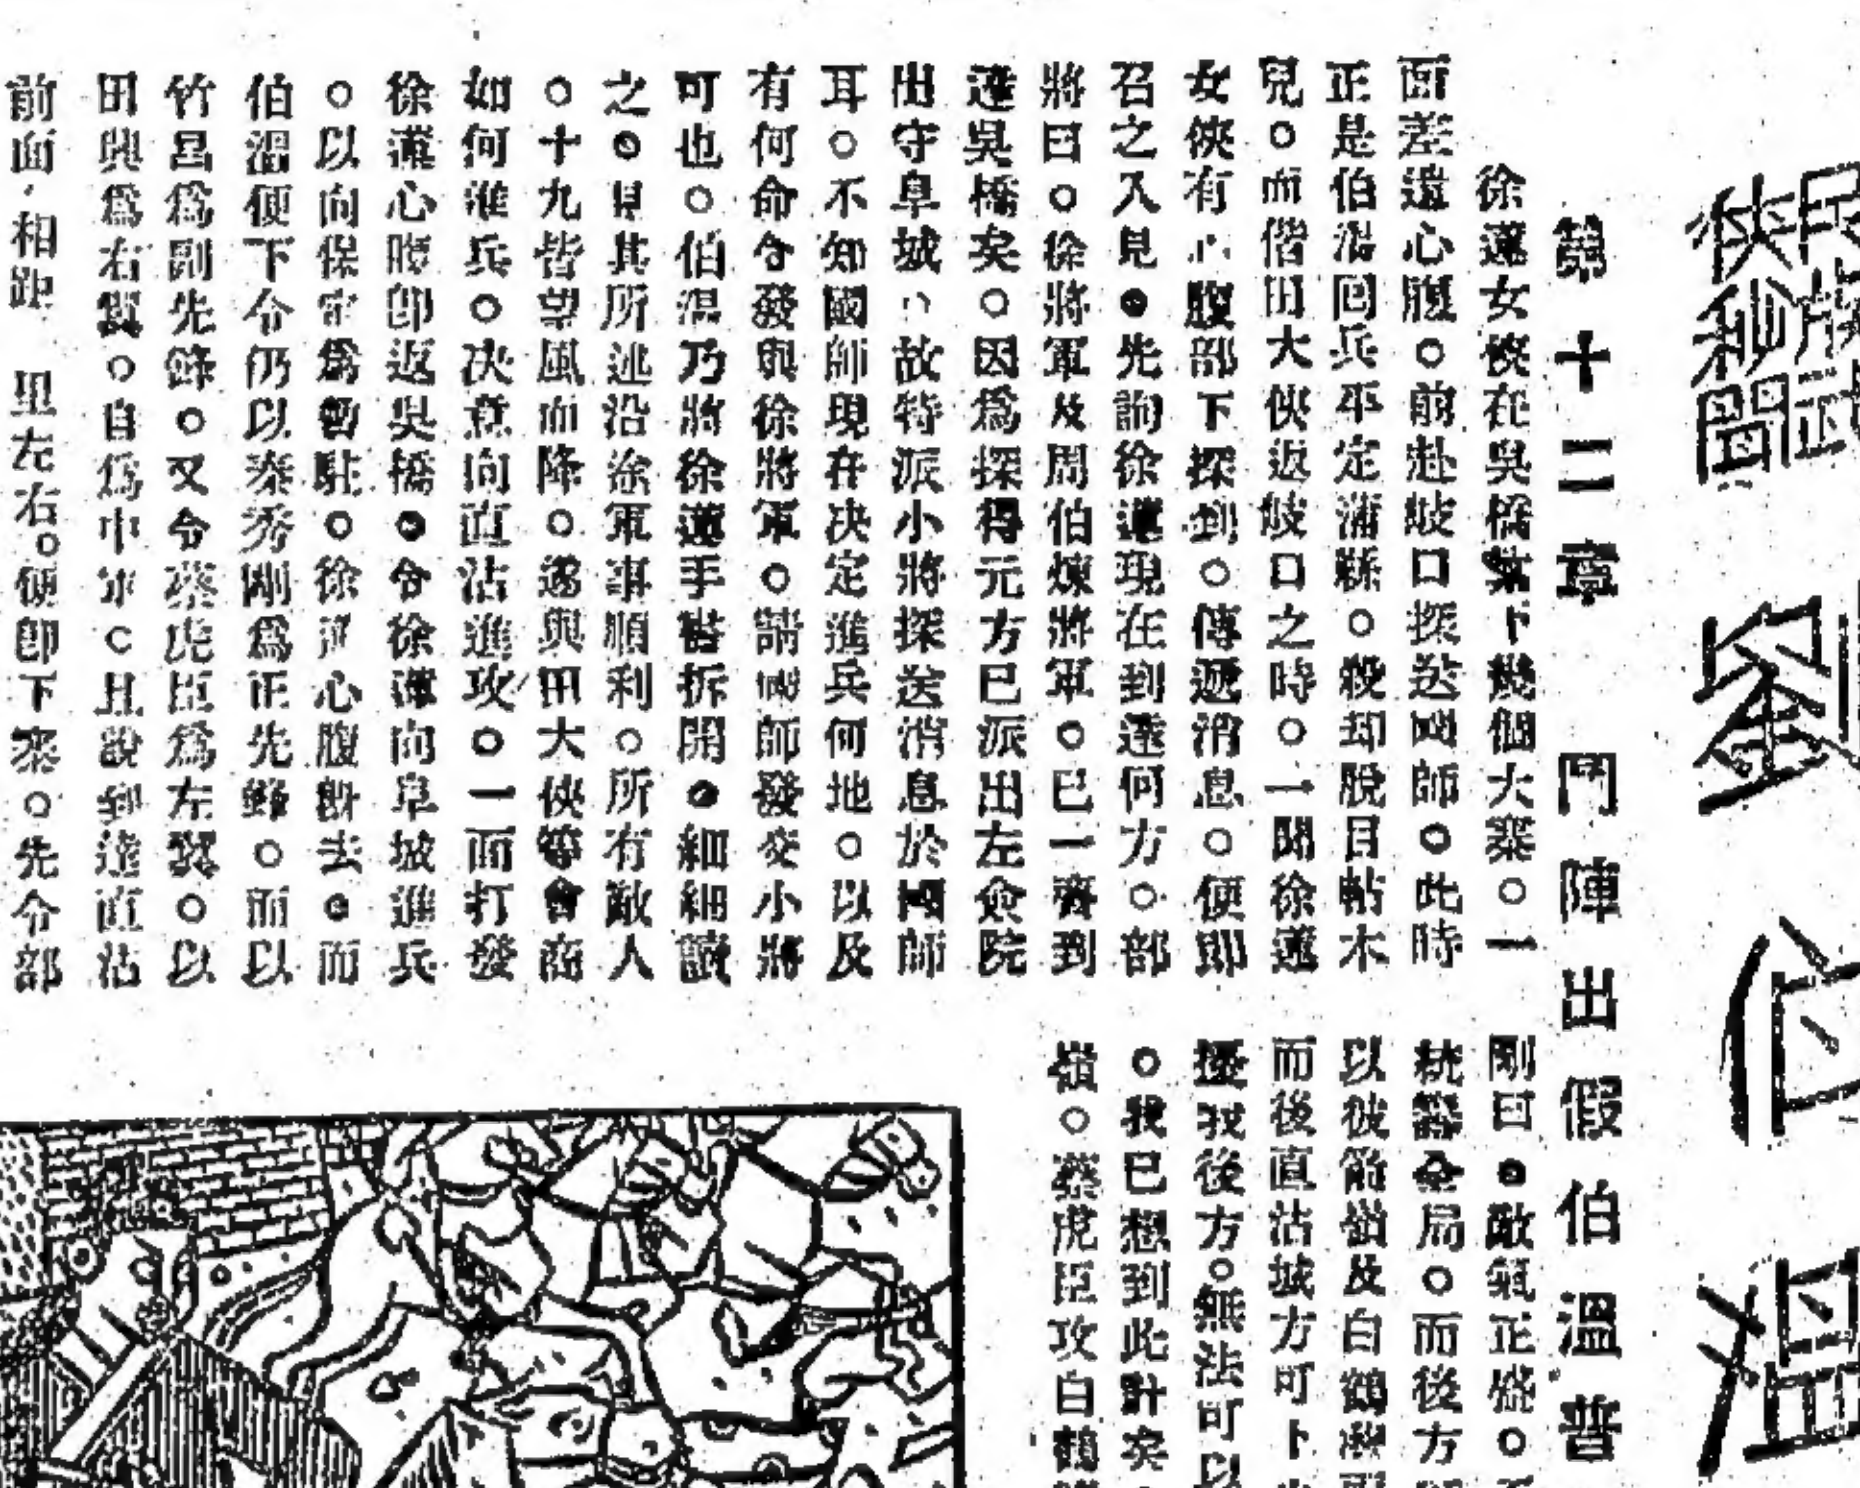 民族武
俠秘聞
劉伯溫
第十二章 鬥陣出假伯溫普
徐達女俠在吳橋紮下幾個大寨。一
面差遠心腹。前赴陂口探送國師。此時
正是伯溫回兵平定蒲縣。殺却脫目帖木
兒。而偕田大俠返陂口之時。一聞徐達
女俠有心腹部下探到。傳遞消息。便即
召之入見。先詢徐達現在到達何方。部
將曰。徐將軍及周伯煉將軍。已一齊到
達吳橋矣。因爲探得元方已派出左僉院
出守阜城。故特派小將探送消息於國師
耳。不知國師現在決定進兵何地。以及
有何命令發與徐將軍。請國師發交小將
可也。伯溫乃將徐達手書拆開。細細讀
之。見其所述沿途軍事順利。所有敵人
。十九皆望風而降。遂與田大俠等會商
如何進兵。決意向直沽進攻。一面打發
徐達心腹即返吳橋。令徐達向阜城進兵
。以向保定爲暫駐。徐達心腹辭去。而
伯溫便下令仍以秦秀剛爲正先鋒。而以
竹昌爲副先鋒。又令蔡虎臣爲左翼。以
田興爲右翼。自爲中軍。且說到達直沽
前面，相距 里左右。便即下寨。先令部
剛曰。敵氣正盛。
統籌全局。而後方
以彼箭嶺及白鶴
而後直沽城方可下
擾我後方。無法可以
。我已想到此計矣
嶺。蔡虎臣攻白鶴